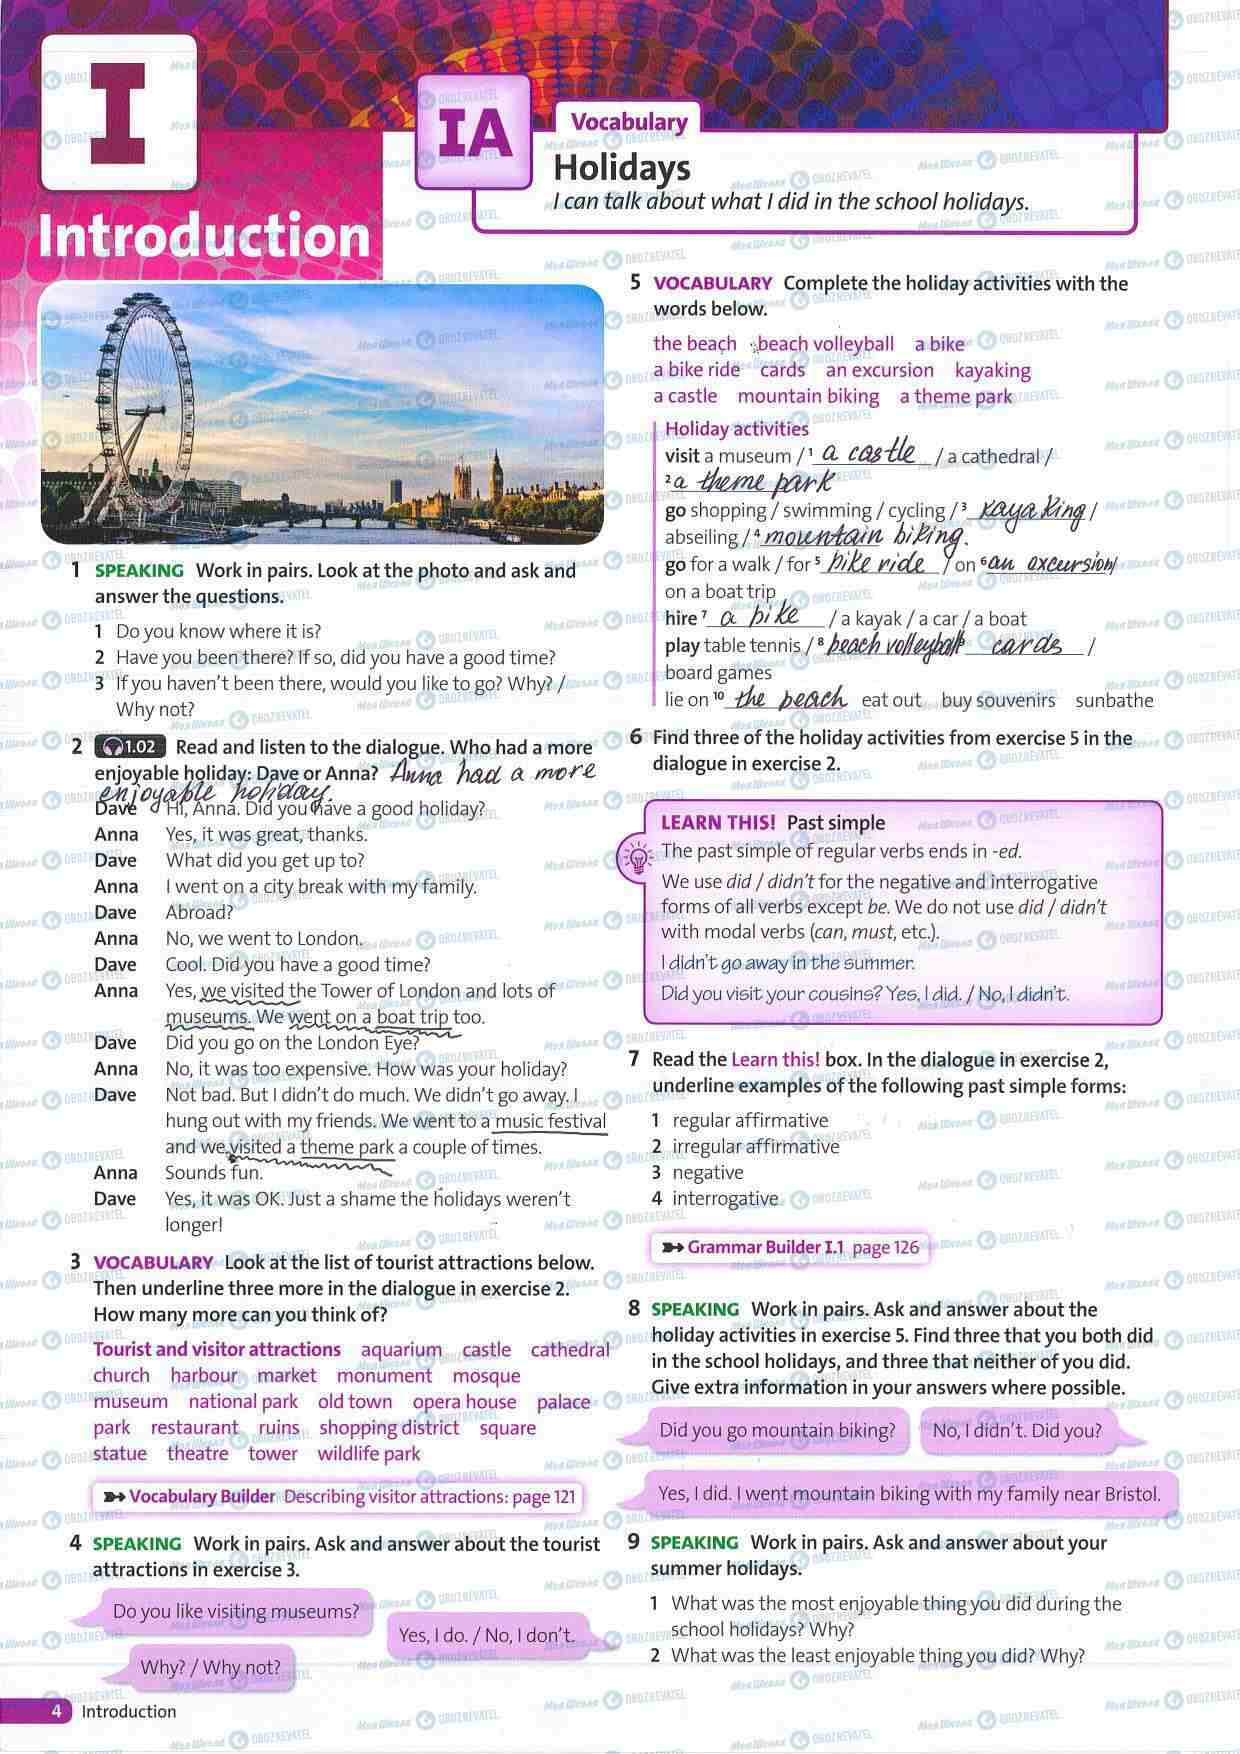 I
Introduction
IA
Vocabulary
Holidays
I can talk about what I did in the school holidays.
1 SPEAKING Work in pairs. Look at the photo and ask and
answer the questions.
1 Do you know where it is?
2 Have you been there? If so, did you have a good time?
3 If you haven't been there, would you like to go? Why? /
Why not?
2 1.02 Read and listen to the dialogue. Who had a more
enjoyable holiday: Dave or Anna? Anna had a more
enjoyable holiday.
Dave Hi, Anna. Did you have a good holiday?
Anna Yes, it was great, thanks.
Dave What did you get up to?
Anna I went on a city break with my family.
Dave Abroad?
Anna No, we went to London.
Dave Cool. Did you have a good time?
Anna Yes, we visited the Tower of London and lots of
museums. We went on a boat trip too.
Dave Did you go on the London Eye?
Anna No, it was too expensive. How was your holiday?
Dave Not bad. But I didn't do much. We didn't go away. I
hung out with my friends. We went to a music festival
and we visited a theme park a couple of times.
Anna Sounds fun.
Dave Yes, it was OK. Just a shame the holidays weren't
longer!
3 VOCABULARY Look at the list of tourist attractions below.
Then underline three more in the dialogue in exercise 2.
How many more can you think of?
Tourist and visitor attractions aquarium castle cathedral
church harbour market monument mosque
museum national park old town opera house palace
park restaurant ruins shopping district square
statue theatre tower wildlife park
Vocabulary Builder Describing visitor attractions: page 121
4 SPEAKING Work in pairs. Ask and answer about the tourist
attractions in exercise 3.
Do you like visiting museums?
Yes, I do. / No, I don't.
Why? / Why not?
4 Introduction
5 VOCABULARY Complete the holiday activities with the
words below.
the beach beach volleyball a bike
a bike ride cards an excursion kayaking
a castle mountain biking a theme park
Holiday activities
visit a museum / 1 a castle / a cathedral /
2 a theme park
go shopping / swimming / cycling / 3 kayaking /
abseiling / 4 mountain biking.
go for a walk / for 5 bike ride / on 6 an excursion /
on a boat trip
hire 7 a bike / a kayak / a car / a boat
play table tennis / 8 beach volleyball 9 cards /
board games
lie on 10 the beach eat out buy souvenirs sunbathe
6 Find three of the holiday activities from exercise 5 in the
dialogue in exercise 2.
LEARN THIS! Past simple
The past simple of regular verbs ends in -ed.
We use did / didn't for the negative and interrogative
forms of all verbs except be. We do not use did / didn't
with modal verbs (can, must, etc.).
I didn't go away in the summer.
Did you visit your cousins? Yes, I did. / No, I didn't.
7 Read the Learn this! box. In the dialogue in exercise 2,
underline examples of the following past simple forms:
1 regular affirmative
2 irregular affirmative
3 negative
4 interrogative
Grammar Builder I.1 page 126
8 SPEAKING Work in pairs. Ask and answer about the
holiday activities in exercise 5. Find three that you both did
in the school holidays, and three that neither of you did.
Give extra information in your answers where possible.
Did you go mountain biking?
No, I didn't. Did you?
Yes, I did. I went mountain biking with my family near Bristol.
9 SPEAKING Work in pairs. Ask and answer about your
summer holidays.
1 What was the most enjoyable thing you did during the
school holidays? Why?
2 What was the least enjoyable thing you did? Why?